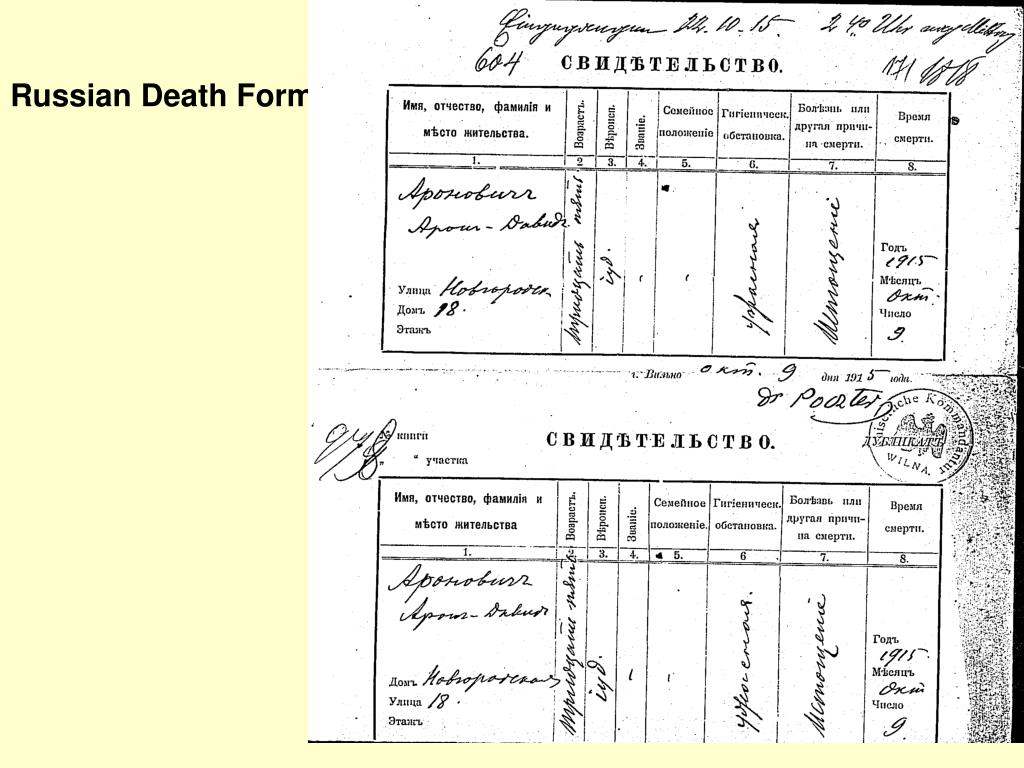 Russian Death Form
22.10.15. 2 40 Uhr
604 СВИДѢТЕЛЬСТВО. 171
Имя, отчество, фамилія и мѣсто жительства.
Возрастъ.
Вѣроисп.
Званіе.
Семейное положеніе
Гигіеническ. обстановка.
Болѣзнь или другая причина смерти.
Время смерти.
1. 2 3. 4. 5. 6. 7. 8.
Ароновичъ
Арон-Давидъ
тридцать пять
іуд.
Истощеніе
Улица Новгородск
Домъ 18.
Этажъ
Годъ
1915
Мѣсяцъ
Окт.
Число
9.
г. Вильно окт. 9 дня 1915 года.
dr Poczter
Kommandantur
ДУБЛИКАТЪ
WILNA.
№ книги
„ “ участка
СВИДѢТЕЛЬСТВО.
Имя, отчество, фамилія и мѣсто жительства
Возрастъ.
Вѣроисп.
Званіе.
Семейное положеніе.
Гигіеническ. обстановка.
Болѣзнь или другая причина смерти.
Время смерти.
1. 2 3. 4. 5. 6 7. 8.
Ароновичъ
Арон-Давидъ
тридцать пять
іуд.
Истощеніе
Домъ Новгородская
Улица 18.
Этажъ
Годъ
1915
Мѣсяцъ
Окт
Число
9.